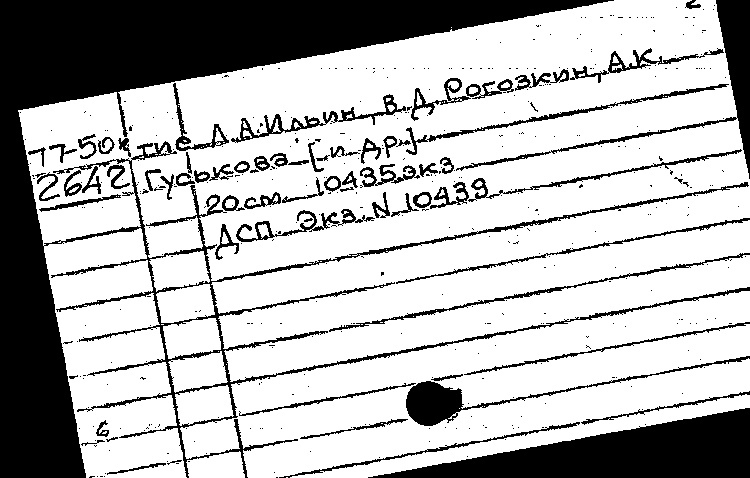 2
77-50к тие Л.А.Ильин, В.Д. Рогозкин, А.К.
2642 Гуськова [и др.]
20 см. 10435 экз
ДСП. Экз. N 10439
6